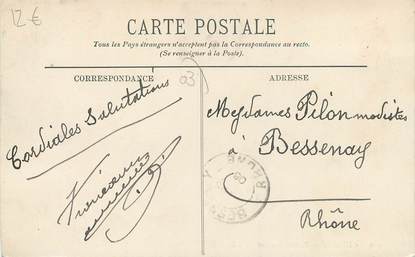 12 €
CARTE POSTALE
Tous les Pays étrangers n'acceptent pas la Correspondance au recto.
(Se renseigner à la Poste).
CORRESPONDANCE
03
ADRESSE
Cordiales Salutations
Mesdames Pilon modistes
à
Bessenay
Rhône
RHONE